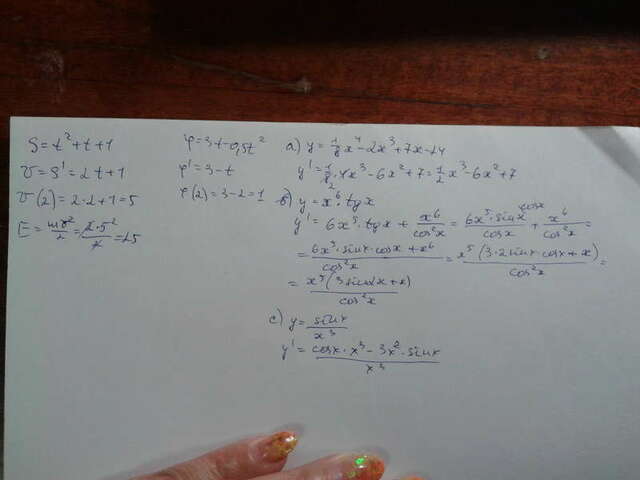 S = t² + t + 1
v = S' = 2t + 1
v(2) = 2·2 + 1 = 5
E = mv²/2 = 2·5²/2 = 25
φ = 3t - 0,5t²
φ' = 3 - t
φ(2) = 3 - 2 = 1
a) y = 1/8 x⁴ - 2x³ + 7x - 14
y' = 1/8₂ · 4x³ - 6x² + 7 = 1/2 x³ - 6x² + 7
б) y = x⁶ · tg x
y' = 6x⁵ · tg x + x⁶/cos²x = 6x⁵ · sin x cos x/cos x + x⁶/cos²x =
= (6x⁵ · sin x · cos x + x⁶)/cos²x = x⁵(3·2 sin x cos x + x)/cos²x =
= x⁵(3 sin 2x + x)/cos²x
c) y = sin x/x³
y' = (cos x · x³ - 3x² · sin x)/x³